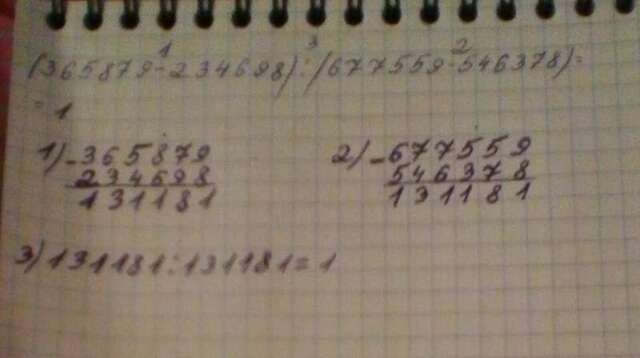 (365879-234698):(677559-546378)=
=1
1) -365879
234698
131181
2) -677559
546378
131181
3) 131181:131181=1